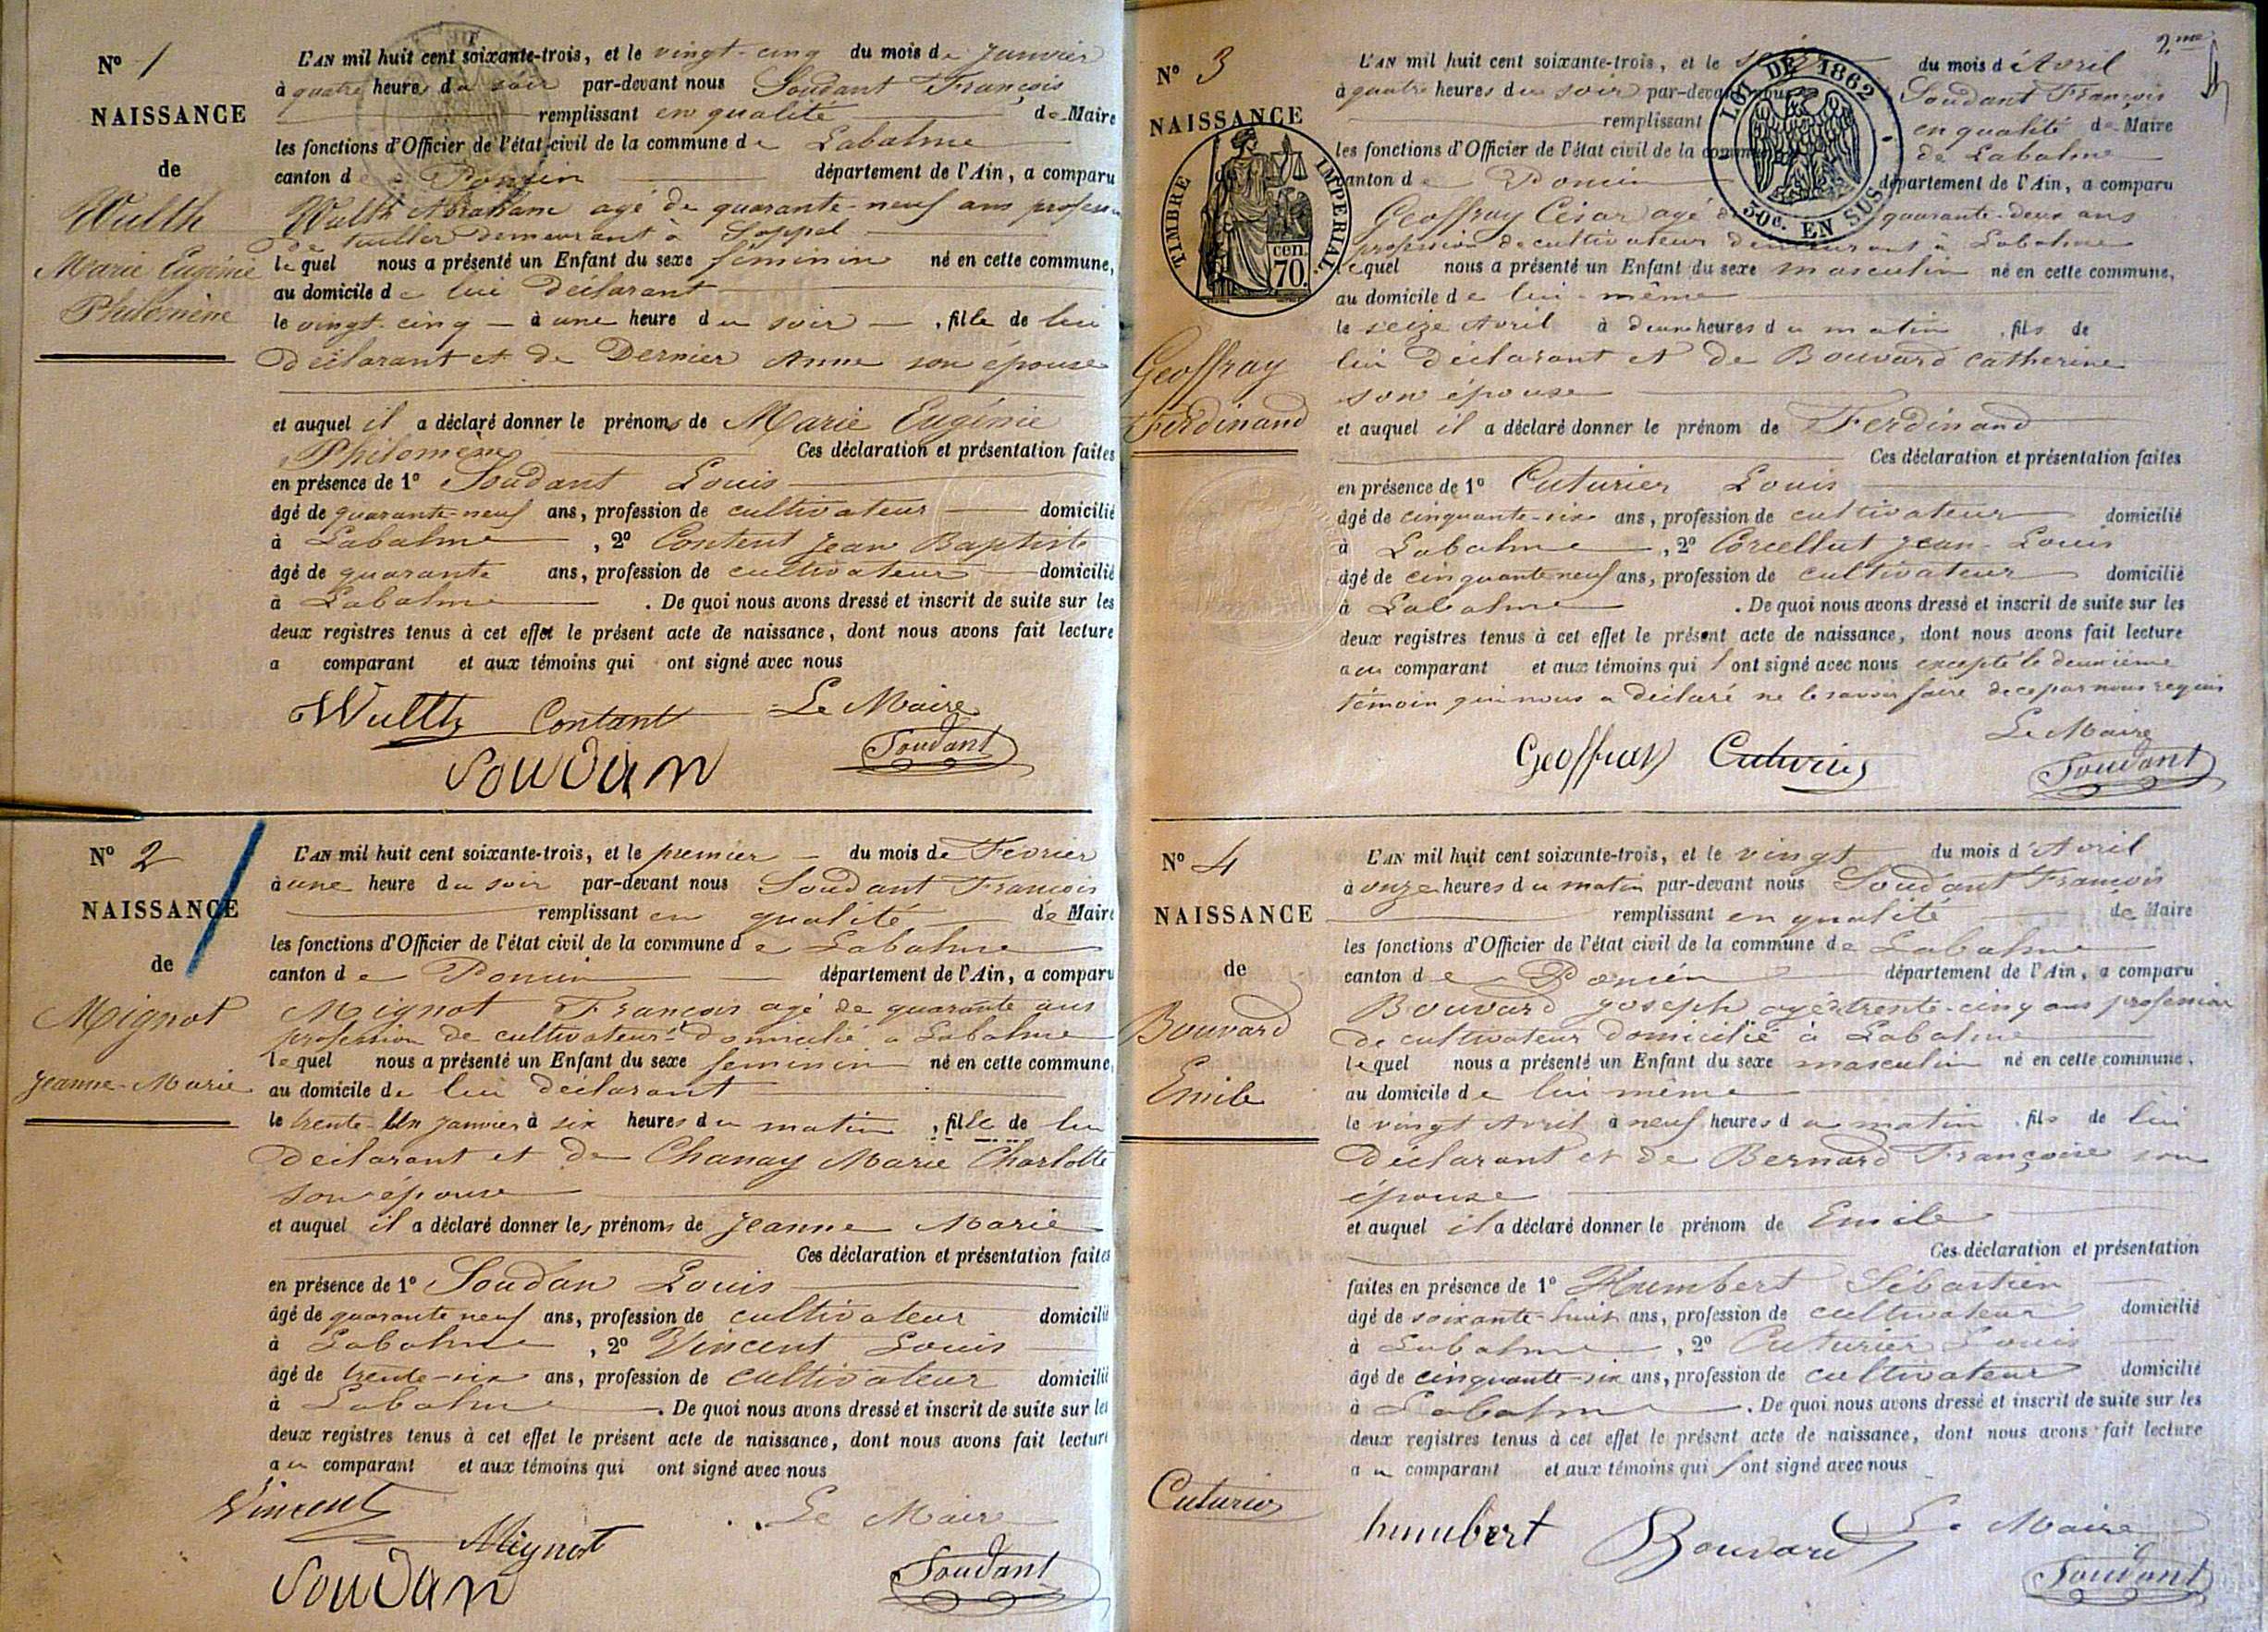 N° 1
NAISSANCE
de
Wulth
Marie Eugénie
Philomène
L'AN mil huit cent soixante-trois, et le vingt-cinq du mois de Janvier
à quatre heures du soir par-devant nous Soudant François
remplissant en qualité de Maire
les fonctions d'Officier de l'état civil de la commune de Labalme
canton de Poncin département de l'Ain, a comparu
Wulth Abraham agé de quarante-neuf ans profession
de demeurant à Soppel
lequel nous a présenté un Enfant du sexe féminin né en cette commune,
au domicile de lui déclarant
le vingt-cinq à une heure du soir, fille de lui
déclarant et de Dernier Anne son épouse
et auquel il a déclaré donner le prénoms de Marie Eugénie
Philomène Ces déclaration et présentation faites
en présence de 1° Soudant Louis
âgé de quarante-neuf ans, profession de cultivateur domicilié
à Labalme, 2° Content Jean Baptiste
âgé de quarante ans, profession de cultivateur domicilié
à Labalme. De quoi nous avons dressé et inscrit de suite sur les
deux registres tenus à cet effet le présent acte de naissance, dont nous avons fait lecture
a comparant et aux témoins qui ont signé avec nous
Wulth Contant Le Maire
Soudan Soudant
N° 2
NAISSANCE
de
Mignot
Jeanne-Marie
L'AN mil huit cent soixante-trois, et le premier du mois de Fevrier
à une heure du soir par-devant nous Soudant François
remplissant en qualité de Maire
les fonctions d'Officier de l'état civil de la commune de Labalme
canton de Poncin département de l'Ain, a comparu
Mignot François agé de quarante ans
profession de cultivateur domicilié a Labalme
lequel nous a présenté un Enfant du sexe feminin né en cette commune,
au domicile de lui déclarant
le trente-Un Janvier à six heures du matin, fille de lui
déclarant et de Chanay Marie Charlotte
son épouse
et auquel il a déclaré donner les prénoms de Jeanne Marie
Ces déclaration et présentation faites
en présence de 1° Soudan Louis
âgé de quarante neuf ans, profession de cultivateur domicilié
à Labalme, 2° Vincent Louis
âgé de trente-six ans, profession de cultivateur domicilié
à Labalme. De quoi nous avons dressé et inscrit de suite sur les
deux registres tenus à cet effet le présent acte de naissance, dont nous avons fait lecture
au comparant et aux témoins qui ont signé avec nous
Vincent Mignot Le Maire
Soudan Soudant
2me
N° 3
NAISSANCE
TIMBRE IMPERIAL
cen. 70.
LOI DE 1862
30c. EN SUS
Geoffray
Ferdinand
L'AN mil huit cent soixante-trois, et le seize du mois d'Avril
à quatre heures du soir par-devant nous Soudant François
remplissant en qualité de Maire
les fonctions d'Officier de l'état civil de la commune de Labalme
canton de Poncin département de l'Ain, a comparu
Geoffray César agé de quarante-deux ans
profession de cultivateur demeurant à Labalme
lequel nous a présenté un Enfant du sexe masculin né en cette commune,
au domicile de lui-même
le seize Avril à deux heures du matin, fils de
lui déclarant et de Bouvard Catherine
son épouse
et auquel il a déclaré donner le prénom de Ferdinand
Ces déclaration et présentation faites
en présence de 1° Cuturier Louis
âgé de cinquante-six ans, profession de cultivateur domicilié
à Labalme, 2° Corcellut Jean-Louis
âgé de cinquante neuf ans, profession de cultivateur domicilié
à Labalme. De quoi nous avons dressé et inscrit de suite sur les
deux registres tenus à cet effet le présent acte de naissance, dont nous avons fait lecture
au comparant et aux témoins qui l'ont signé avec nous excepté le deuxième
témoin qui nous a déclaré ne le savoir faire de ce par nous requis
Le Maire
Geoffray Cuturier Soudant
N° 4
NAISSANCE
de
Bouvard
Emile
L'AN mil huit cent soixante-trois, et le vingt du mois d'Avril
à onze heures du matin par-devant nous Soudant François
remplissant en qualité de Maire
les fonctions d'Officier de l'état civil de la commune de Labalme
canton de Poncin département de l'Ain, a comparu
Bouvard Joseph agé trente-cinq ans profession
de cultivateur domicilié à Labalme
lequel nous a présenté un Enfant du sexe masculin né en cette commune.
au domicile de lui même
le vingt Avril à neuf heures du matin, fils de lui
déclarant et de Bernard Françoise son
épouse
et auquel il a déclaré donner le prénom de Emile
Ces déclaration et présentation
faites en présence de 1° Humbert Sébastien
âgé de soixante-huit ans, profession de cultivateur domicilié
à Labalme, 2° Cuturier Louis
âgé de cinquante-six ans, profession de cultivateur domicilié
à Labalme. De quoi nous avons dressé et inscrit de suite sur les
deux registres tenus à cet effet le présent acte de naissance, dont nous avons fait lecture
au comparant et aux témoins qui l'ont signé avec nous
Cuturier humbert Bouvard Le Maire
Soudant